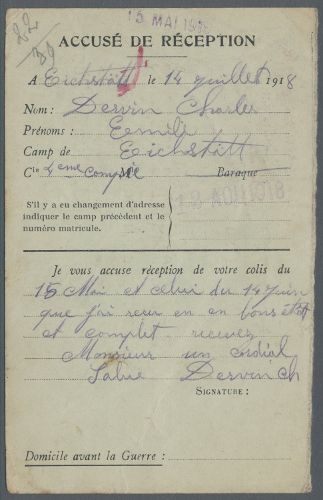 15 MAI 19
22/39
ACCUSÉ DE RÉCEPTION
A Eichstätt le 14 juillet 1918
Nom : Dervin Charles
Prénoms : Emile
Camp de Eichstätt
Cie 4eme Compie Mle Baraque
S'il y a eu changement d'adresse
indiquer le camp précédent et le
numéro matricule.
12 AOU 1918
Je vous accuse réception de votre colis du
15 Mai et celui du 14 Juin
que j'ai reçu en en bons état
et complet recevez
Monsieur un cordial
Salue Dervin Ch
SIGNATURE :
Domicile avant la Guerre :